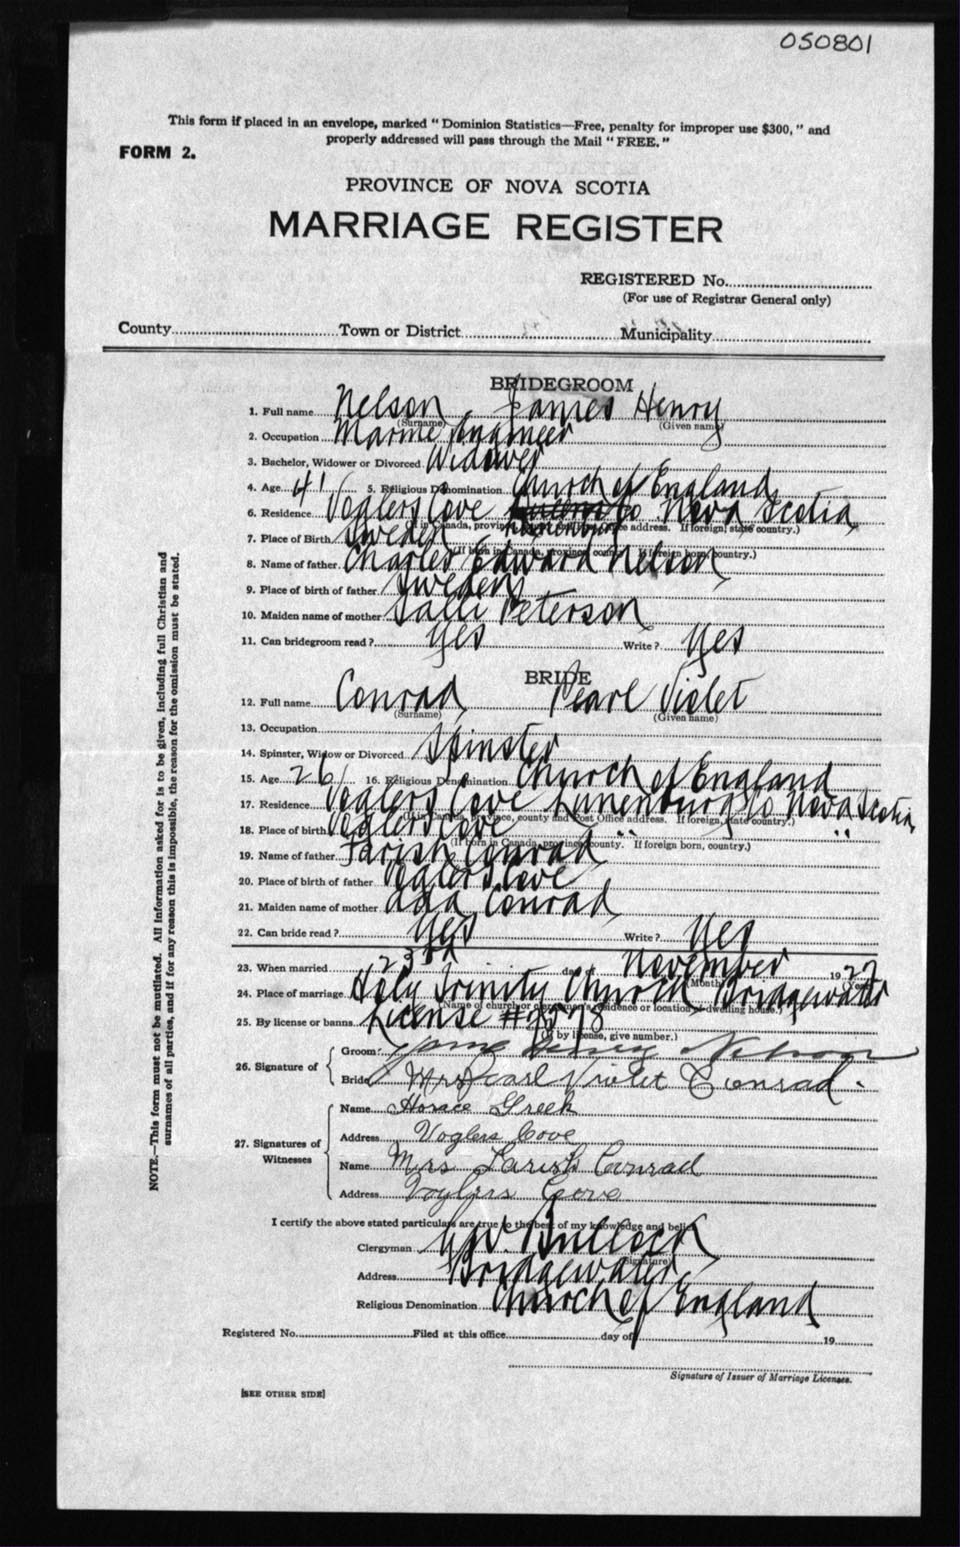 050801
This form if placed in an envelope, marked “Dominion Statistics—Free, penalty for improper use $300,” and
properly addressed will pass through the Mail “FREE.”
FORM 2.
PROVINCE OF NOVA SCOTIA
MARRIAGE REGISTER
REGISTERED No.
(For use of Registrar General only)
County Town or District Municipality
BRIDEGROOM
1. Full name Nelson James Henry
(Surname) (Given name)
2. Occupation Marine Engineer
3. Bachelor, Widower or Divorced Widower
4. Age 41 5. Religious Denomination Church of England
6. Residence Voglers Cove Lunenburg Co Nova Scotia
(If in Canada, province, county and Post Office address. If foreign, state country.)
7. Place of Birth Sweden
(If born in Canada, province, county. If foreign born, country.)
8. Name of father Charles Edward Nelson
9. Place of birth of father Sweden
10. Maiden name of mother Salli Peterson
11. Can bridegroom read? Yes Write? Yes
BRIDE
12. Full name Conrad Pearl Violet
(Surname) (Given name)
13. Occupation
14. Spinster, Widow or Divorced Spinster
15. Age 26 16. Religious Denomination Church of England
17. Residence Voglers Cove Lunenburg Co Nova Scotia
(If in Canada, province, county and Post Office address. If foreign, state country.)
18. Place of birth Voglers Cove " "
(If born in Canada, province, county. If foreign born, country.)
19. Name of father Parish Conrad
20. Place of birth of father Voglers Cove
21. Maiden name of mother Ada Conrad
22. Can bride read? Yes Write? Yes
23. When married 23rd day of November 1927
(Month) (Year)
24. Place of marriage Holy Trinity Church Bridgewater
(Name of church or clergyman's residence or location of dwelling house.)
25. By license or banns License #
(If by license, give number.)
26. Signature of
Groom: James Henry Nelson
Bride Mrs Pearl Violet Conrad.
27. Signatures of Witnesses
Name Horace Greek
Address Voglers Cove
Name Mrs Parish Conrad
Address Voglers Cove
I certify the above stated particulars are true to the best of my knowledge and belief.
Clergyman Bullock
(Signature)
Address Bridgewater
Religious Denomination Church of England
Registered No. Filed at this office day of 19
Signature of Issuer of Marriage Licenses.
[SEE OTHER SIDE]
NOTE.—This form must not be mutilated. All information asked for is to be given, including full Christian and
surnames of all parties, and if for any reason this is impossible, the reason for the omission must be stated.